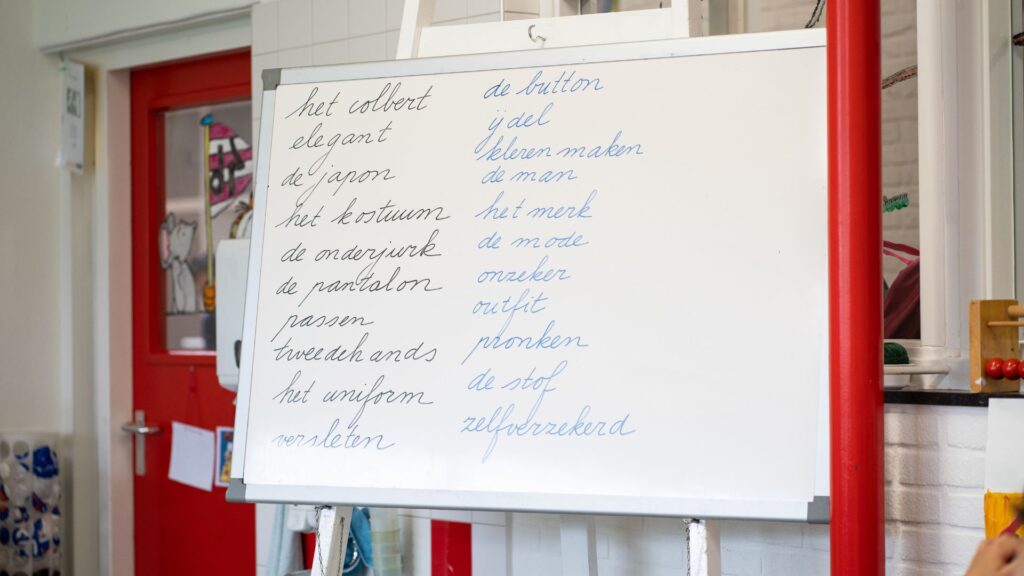 het colbert
elegant
de japon
het kostuum
de onderjurk
de pantalon
passen
tweedehands
het uniform
versleten
de button
ijdel
kleren maken
de man
het merk
de mode
onzeker
outfit
pronken
de stof
zelfverzekerd